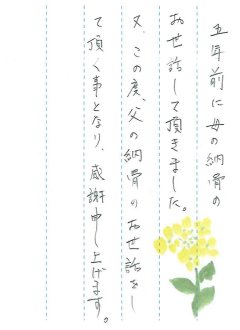 五年前に母の納骨の
お世話して頂きました。
又、この度、父の納骨のお世話をし
て頂く事となり、感謝申し上げます。